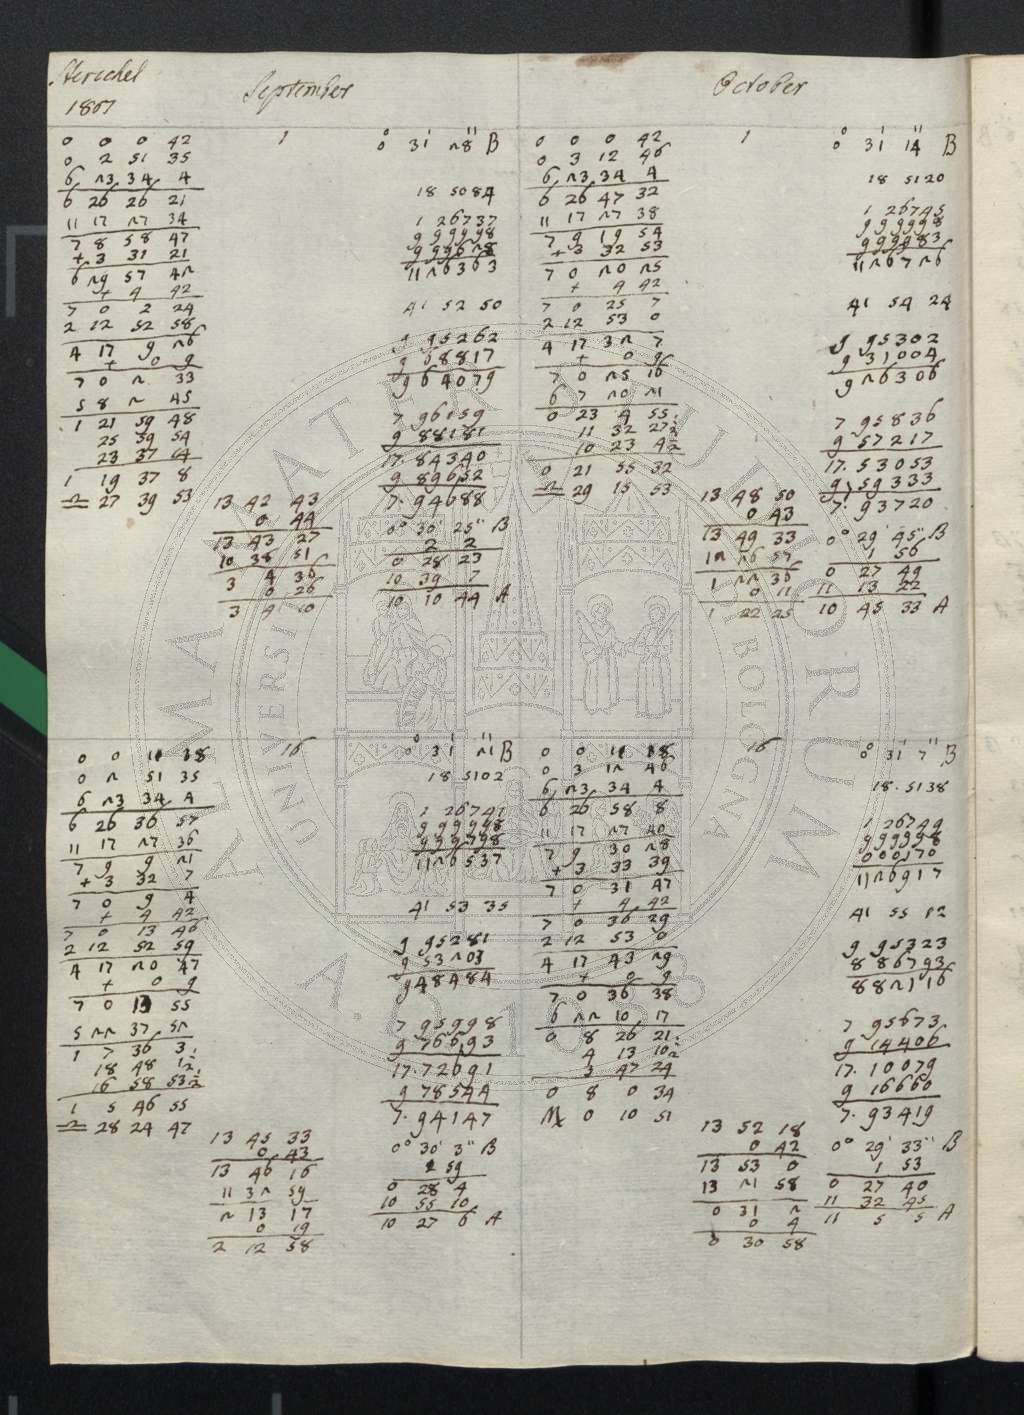 Herschel
1807
September
October
0 0 0 42
0 2 51 35
6 23 34 4
6 26 26 21
11 17 27 34
7 8 58 47
+ 3 31 21
6 29 57 42
+ 4 42
7 0 2 24
2 12 52 58
4 17 9 26
+ 0 9
7 0 2 33
5 8 2 45
1 21 59 48
25 59 54
23 37 64
1 19 37 8
♎ 27 39 53
1
0° 31' 28" B
18 5084
1 26737
9 99998
9 99628
11 26363
41 52 50
9 95262
9 68817
9 64079
7 96159
9 88181
17.84340
9 89652
7.94688
13 42 43
0 44
13 43 27
10 38 51
3 4 36
0 26
3 4 10
0° 30' 25" B
2 2
0 28 23
10 39 7
10 10 44 A
0 0 0 42
0 3 12 46
6 23 34 4
6 26 47 32
11 17 27 38
7 9 19 54
+ 3 32 53
7 0 20 25
+ 4 42
7 0 25 7
2 12 53 0
4 17 32 7
+ 0 9
7 0 25 16
6 7 20 21
0 23 4 55
11 32 27½
10 23 4½
0 21 55 32
♎ 29 15 53
1
0° 31' 14" B
18 5120
1 26745
9 99998
9 99983
11 26726
41 54 24
9 95302
9 31004
9 26306
7 95836
9 57217
17.53053
9 59333
7.93720
13 48 50
0 43
13 49 33
12 26 57
1 22 36
0 11
1 22 25
0° 29' 45" B
1 56
0 27 49
11 13 22
10 45 33 A
0 0 11 38
0 2 51 35
6 23 34 4
6 26 36 57
11 17 27 36
7 9 9 21
+ 3 32 7
7 0 9 4
+ 4 42
7 0 13 46
2 12 52 59
4 17 20 47
+ 0 9
7 0 13 55
5 22 37 52
1 7 36 3
18 48 1½
16 58 53½
1 5 46 55
♎ 28 24 47
16
0° 31' 21" B
18 5102
1 26741
9 99998
9 99798
11 20537
41 53 35
9 95281
9 53203
9 48484
7 95998
9 76693
17.72691
9 78544
7.94147
13 45 33
0 43
13 46 16
11 32 59
2 13 17
0 19
2 12 58
0° 30' 3" B
1 59
0 28 4
10 55 10
10 27 6 A
0 0 11 38
0 3 12 46
6 23 34 4
6 26 58 8
11 17 27 40
7 9 30 28
+ 3 33 39
7 0 31 47
+ 4 42
7 0 36 29
2 12 53 0
4 17 43 29
+ 0 9
7 0 36 38
6 22 10 17
0 8 26 21
4 13 10½
3 47 24
0 8 0 34
♏ 0 10 51
16
0° 31' 7" B
18.5138
1 26749
9 99998
0 00170
11 26917
41 55 12
9 95323
8 86793
8 82116
7 95673
9 14406
17.10079
9 16660
7.93419
13 52 18
0 42
13 53 0
13 21 58
0 31 2
0 4
0 30 58
0° 29' 33" B
1 53
0 27 40
11 32 45
11 5 5 A
ALMA MATER STUDIORUM
UNIVERSITÀ DI BOLOGNA
A.D. 1088